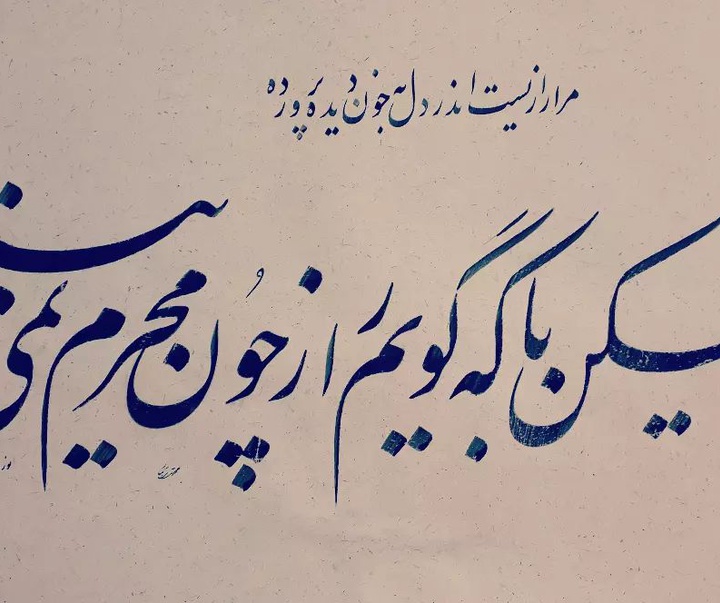 مرا رازیست اندر دل به خون دیده پرورده
یکن با که گویم راز چون محرم نمی بین